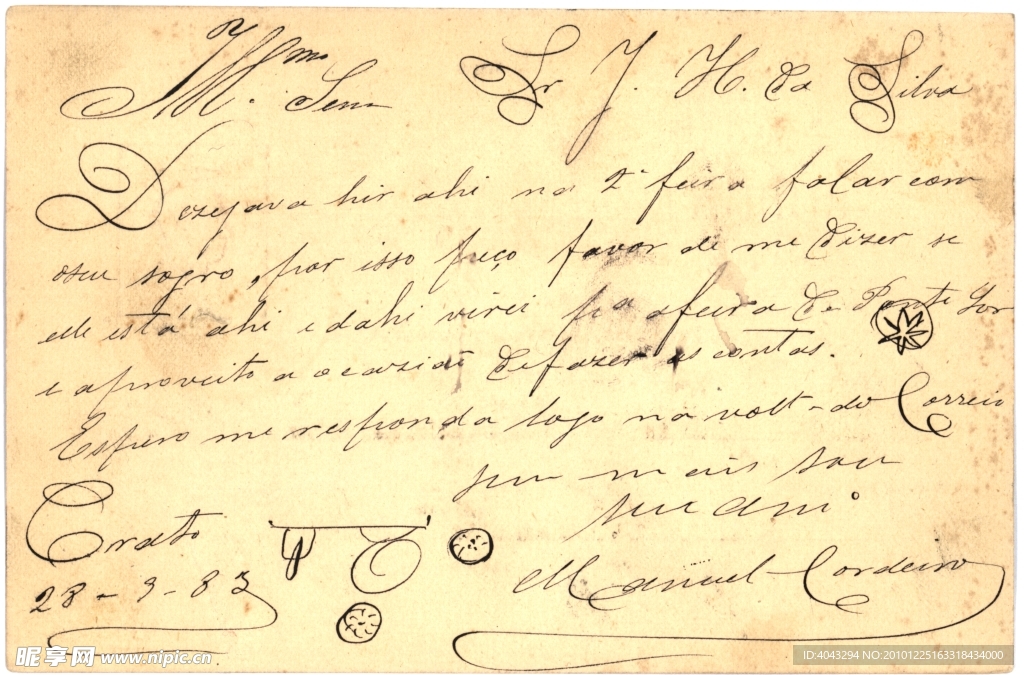 Illmo Senr Sr J. H. da Silva
Dezejava hir ahi na 2ª feira falar com
oseu sogro, por isso peço favor de me dizer se
elle está ahi e dahi virei pa afeira de Ponte Sor
e aproveito a ocazião defazer as contas.
Espero me responda logo na volt-do Correio
sem mais sou
seu amº
Crato
28-3-83
Manuel Cordeiro
昵享网 www.nipic.cn
ID:4043294 NO:20101225163318434000